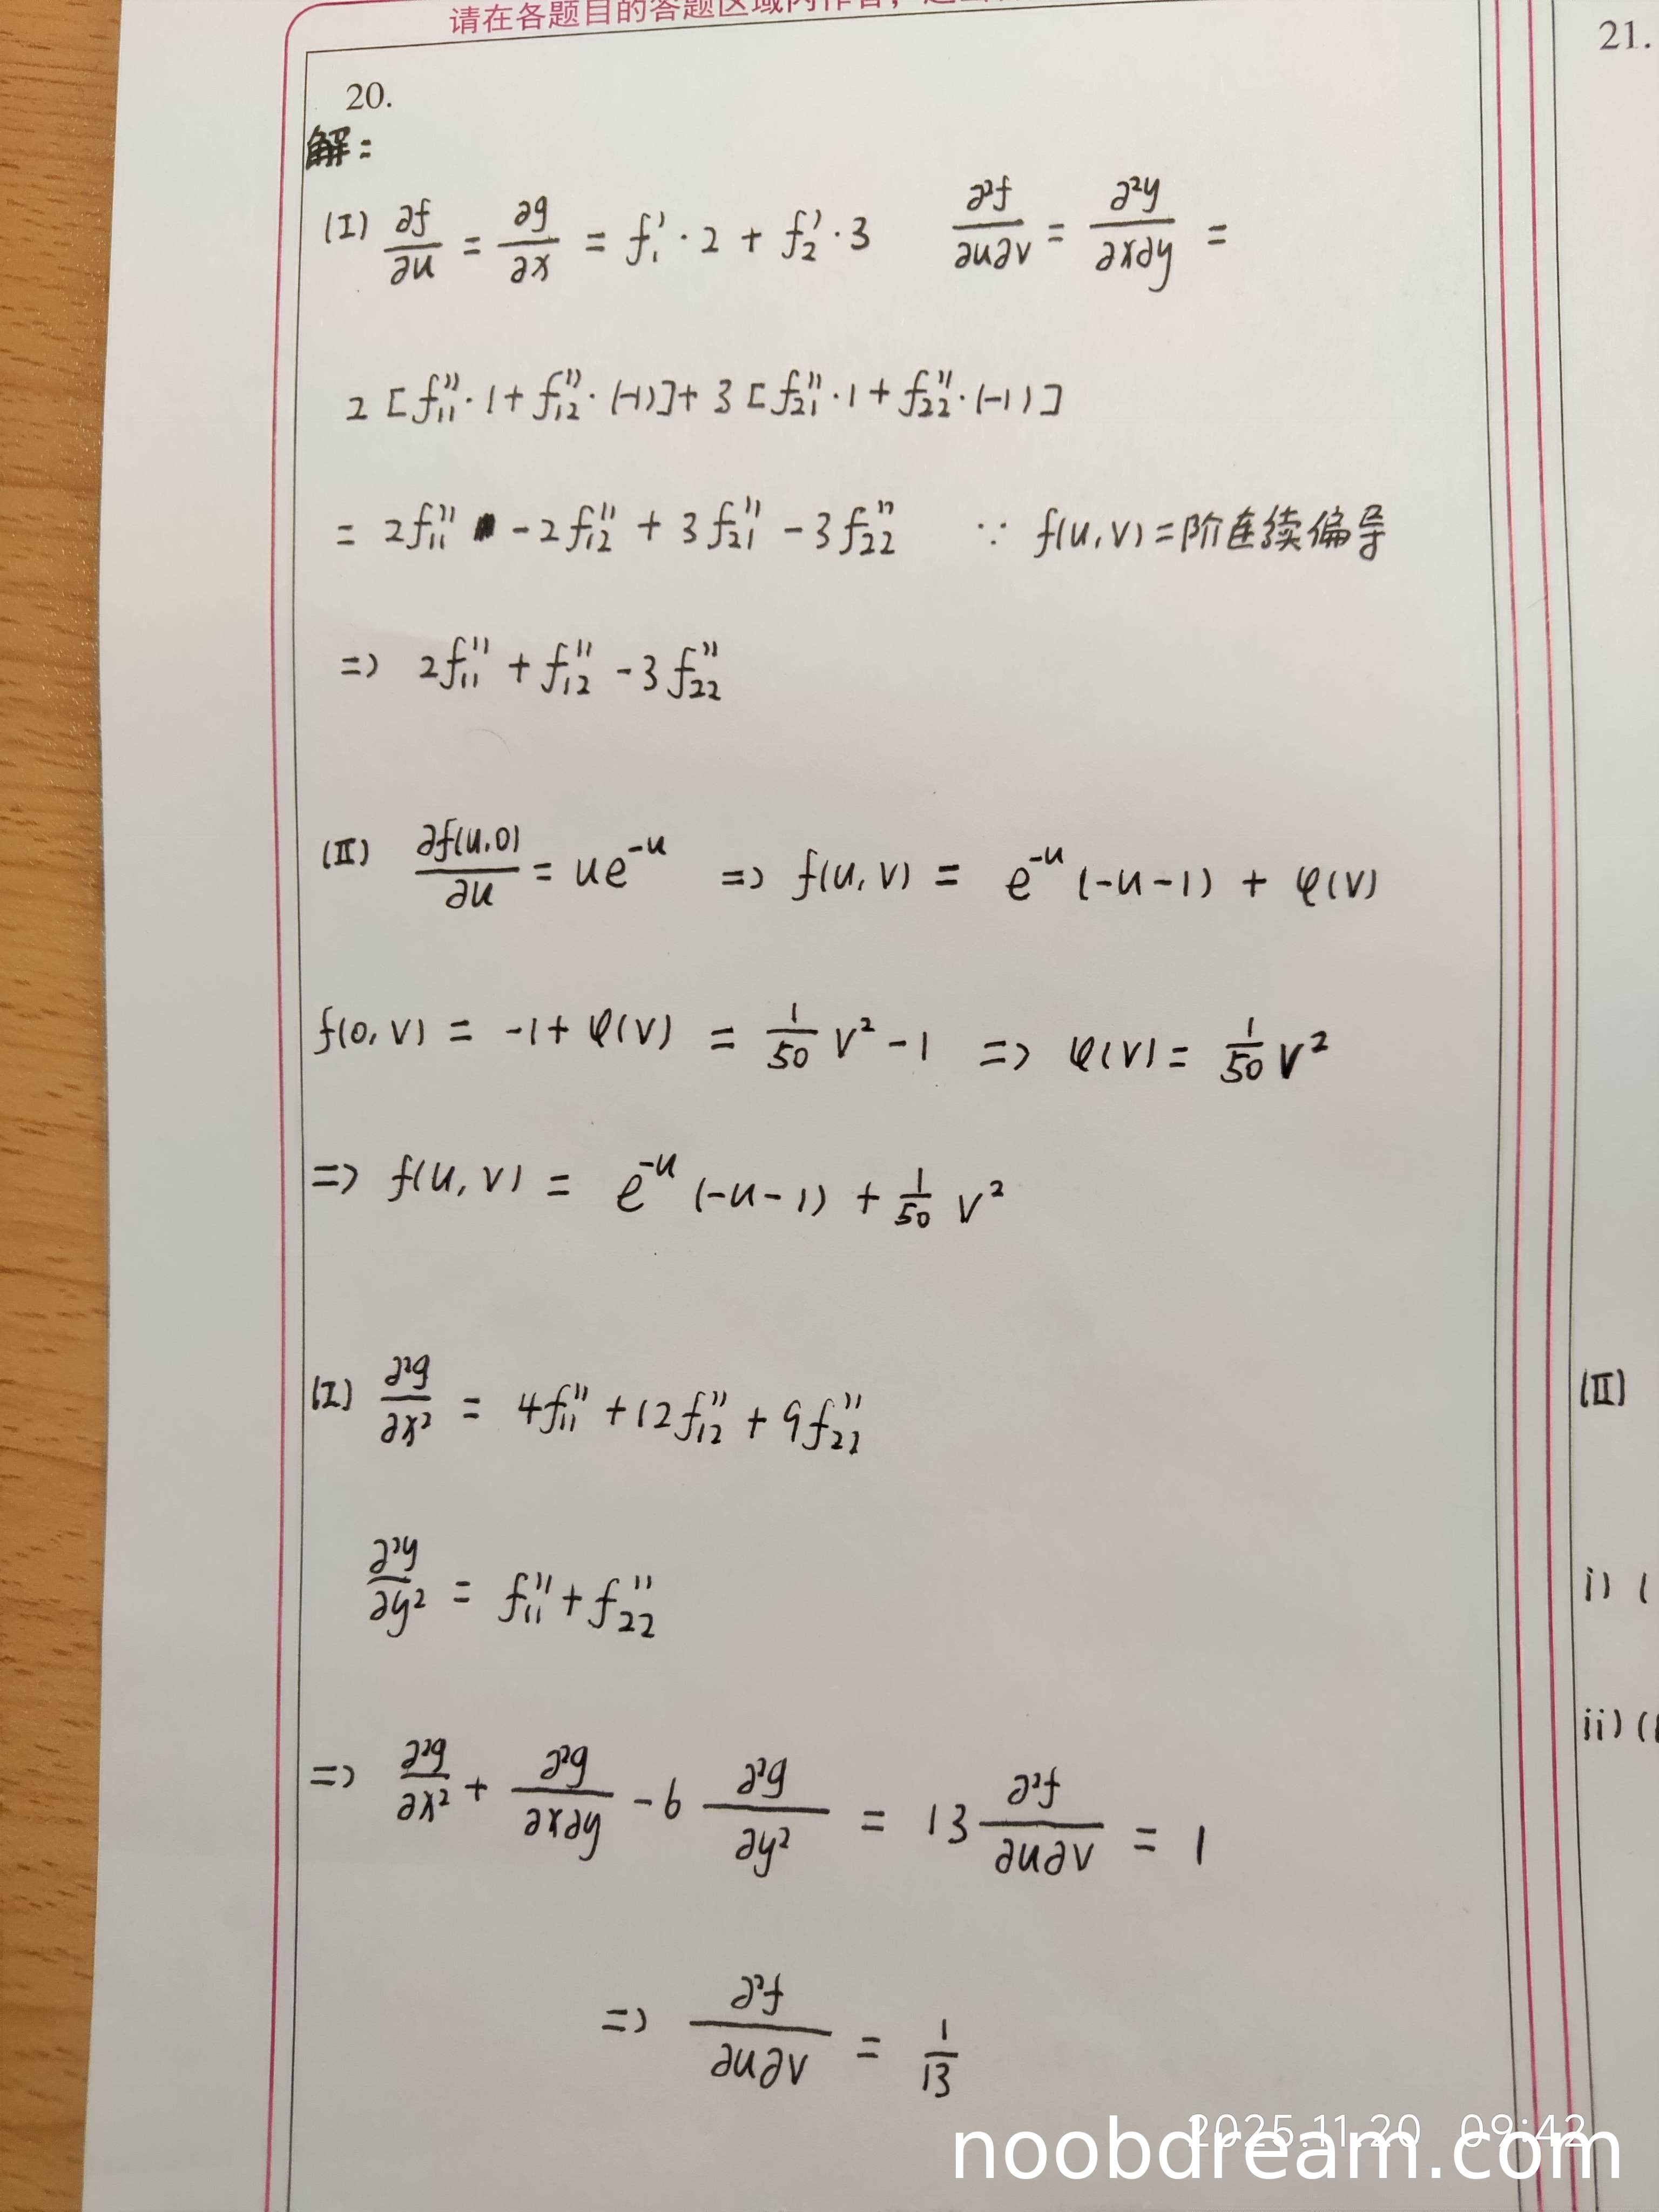 请在各题目的答题区域内作答，
20.
21.
解：
(I) ∂f/∂u = ∂g/∂x = f₁′·2 + f₂′·3    ∂²f/∂u∂v = ∂²y/∂x∂y =
2 [f₁₁″·1 + f₁₂″·(-1)] + 3 [f₂₁″·1 + f₂₂″·(-1)]
= 2f₁₁″ - 2f₁₂″ + 3f₂₁″ - 3f₂₂″    ∵ f(u,v)=阶连续偏导
=> 2f₁₁″ + f₁₂″ - 3f₂₂″
(II) ∂f(u,0)/∂u = ue⁻ᵘ => f(u,v) = e⁻ᵘ(-u-1) + φ(v)
f(0,v) = -1+φ(v) = 1/50 v² - 1 => φ(v) = 1/50 v²
=> f(u,v) = e⁻ᵘ(-u-1) + 1/50 v²
(I) ∂²g/∂x² = 4f₁₁″ + 12f₁₂″ + 9f₂₂″
∂²y/∂y² = f₁₁″ + f₂₂″
=> ∂²g/∂x² + ∂²g/∂x∂y - 6 ∂²g/∂y² = 13 ∂²f/∂u∂v = 1
=> ∂²f/∂u∂v = 1/13
(II)
i) (
ii) (
2025.11.20 09:42
noobdream.com